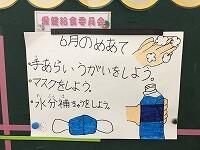 保健給食委員会
6月のめあて
・手あらいうがいをしよう。
・マスクをしよう。
・水分補きゅうをしよう。